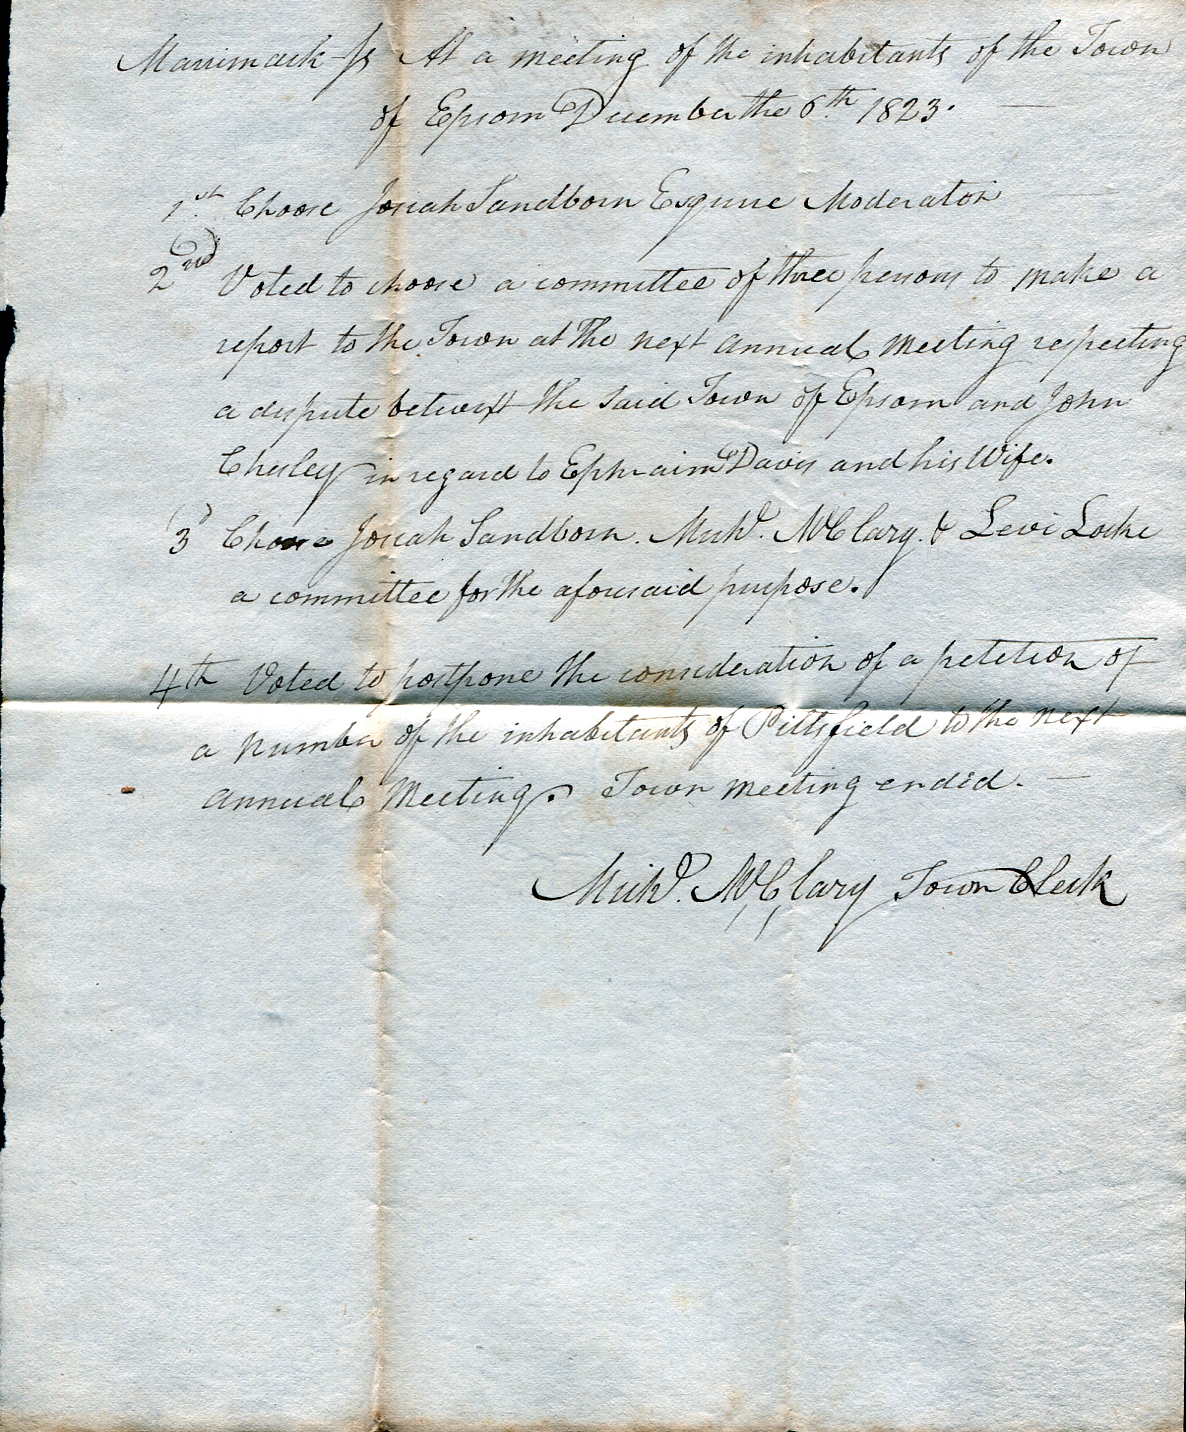 Merrimack Ss At a meeting of the inhabitants of the Town
of Epsom December the 6th 1823. —
1st. Choose Josiah Sandborn Esquire Moderator
2nd Voted to choose a committee of three persons to make a
report to the Town at the next annual meeting respecting
a dispute betwixt the said Town of Epsom and John
Chesley in regard to Ephraim Davis and his Wife.
3d Choose Josiah Sandborn. Michl. McClary. & Levi Locke
a committee for the aforesaid purpose.
4th Voted to postpone the consideration of a petition of
a number of the inhabitants of Pittsfield to the next
annual Meeting. Town meeting ended. —
Michl. McClary Town Clerk